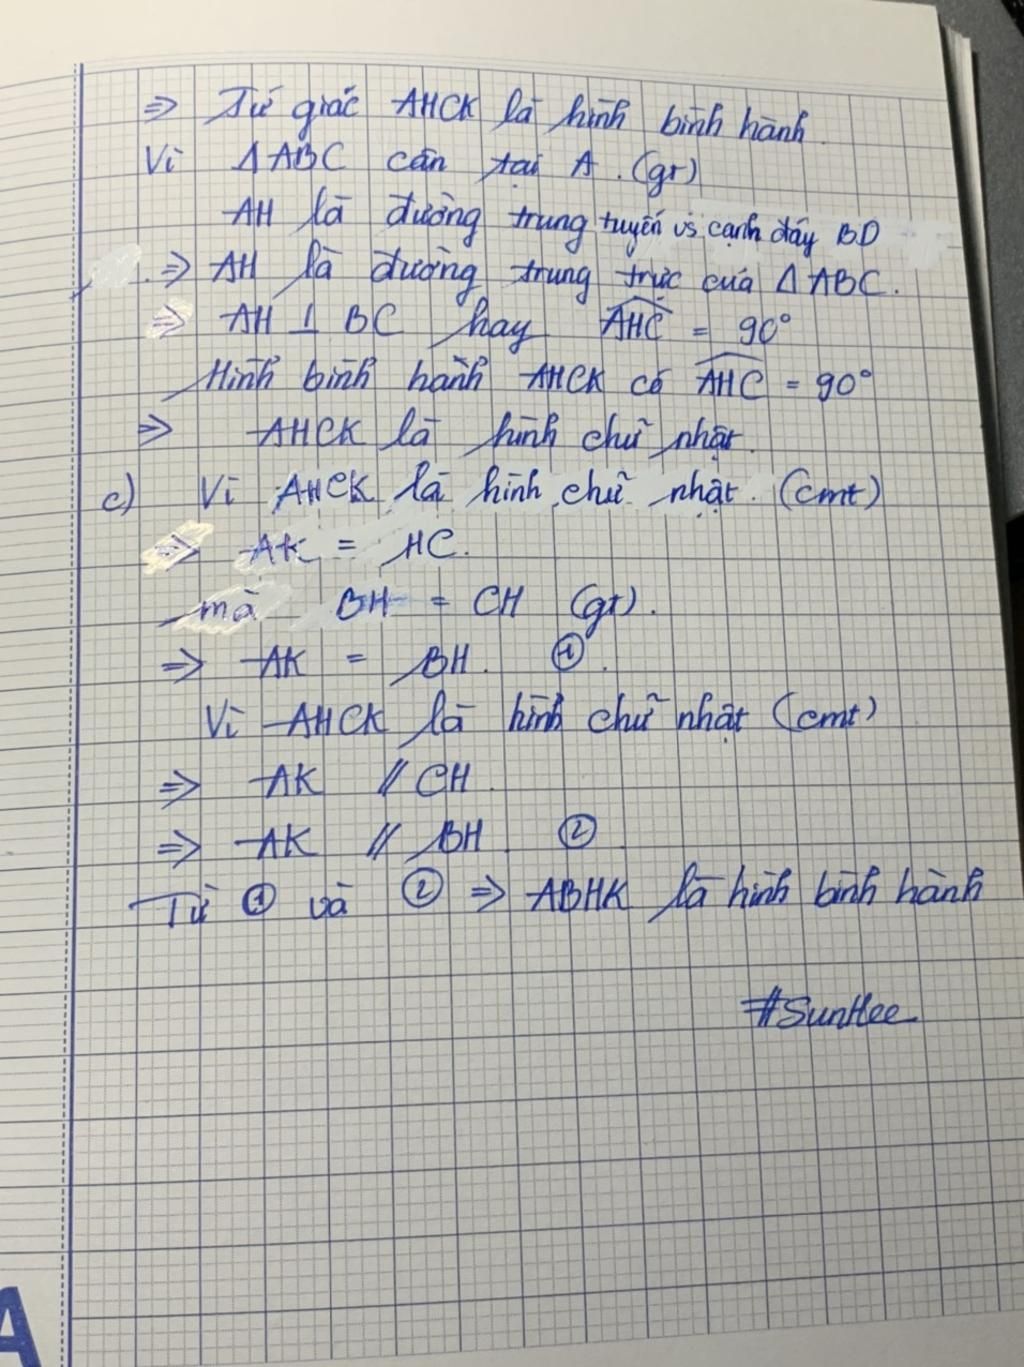 ⇒ Tứ giác AHCK là hình bình hành.
Vì ΔABC cân tại A. (gt)
AH là đường trung tuyến vs cạnh đáy BD
⇒ AH là đường trung trực của ΔABC.
⇒ AH ⊥ BC hay \widehat{AHC} = 90°
Hình bình hành AHCK có \widehat{AHC} = 90°
⇒ AHCK là hình chữ nhật.
c) Vì AHCK là hình chữ nhật. (cmt)
⇒ AK = HC.
mà BH = CH (gt).
⇒ AK = BH. ①.
Vì AHCK là hình chữ nhật (cmt)
⇒ AK // CH
⇒ AK // BH ②
Từ ① và ② ⇒ ABHK là hình bình hành
#SunHee
A